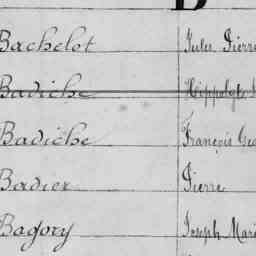 D
Bachelot Jules Pierre
Badiche Hippolyte
Badiche François
Badier Pierre
Bagory Joseph Mari